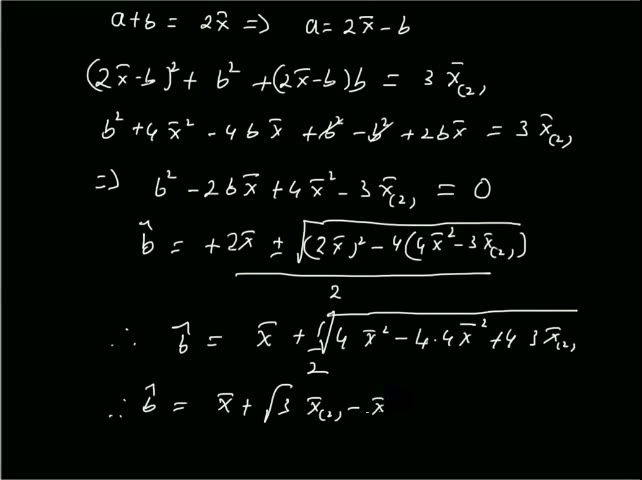 a+b = 2x̄ => a = 2x̄-b
(2x̄-b)² + b² + (2x̄-b)b = 3 x̄₍₂₎
b² + 4x̄² - 4bx̄ + b² - b² + 2bx̄ = 3 x̄₍₂₎
=> b² - 2bx̄ + 4x̄² - 3x̄₍₂₎ = 0
b̂ = +2x̄ ± √((2x̄)² - 4(4x̄² - 3x̄₍₂₎))
2
∴ b̂ = x̄ + √(4 x̄² - 4·4x̄² + 4 3x̄₍₂₎
2
∴ b̂ = x̄ + √3 x̄₍₂₎ - x̄